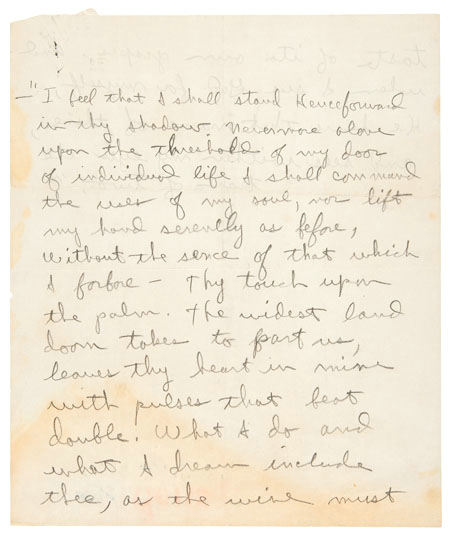 — "I feel that I shall stand Henceforward
in thy shadow. Nevermore alone
upon the threshold of my door
of individual life I shall command
the uses of my soul, nor lift
my hand serenly as fefore,
Without the sence of that which
I forbore — Thy touch upon
the palm. The widest land
doom takes to part us,
leaves thy heart in mine
with pulses that beat
double. What I do and
what I dream include
thee, as the wine must